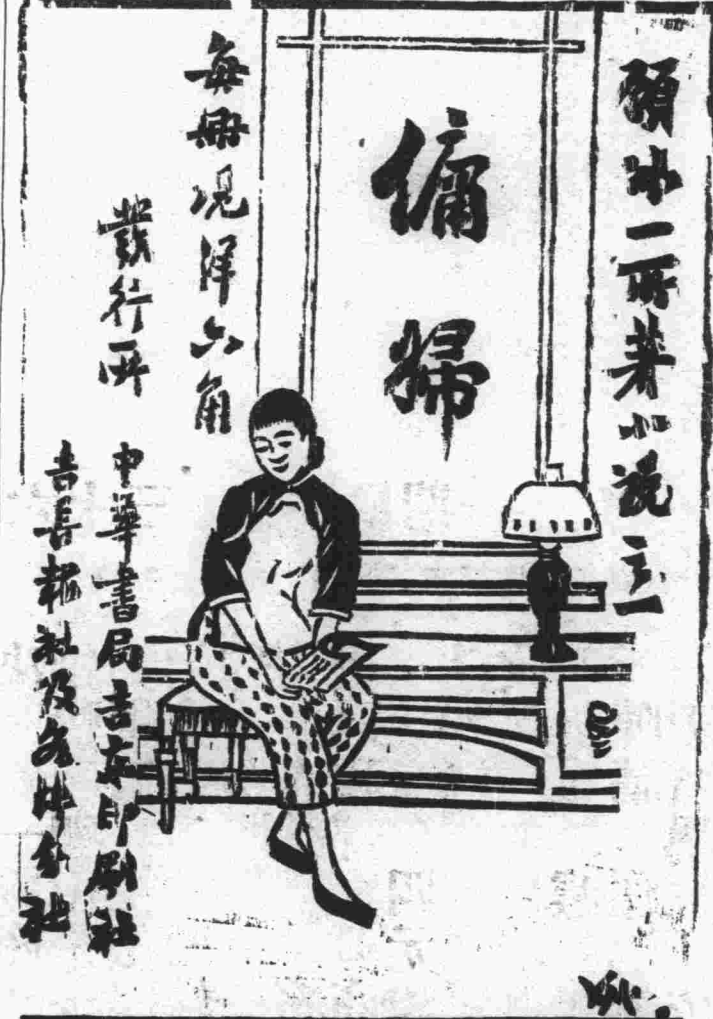 顧冰一所著小說之一
傭婦
每冊現洋六角
發行所
中華書局吉東印刷社
吉長報社及各埠分社